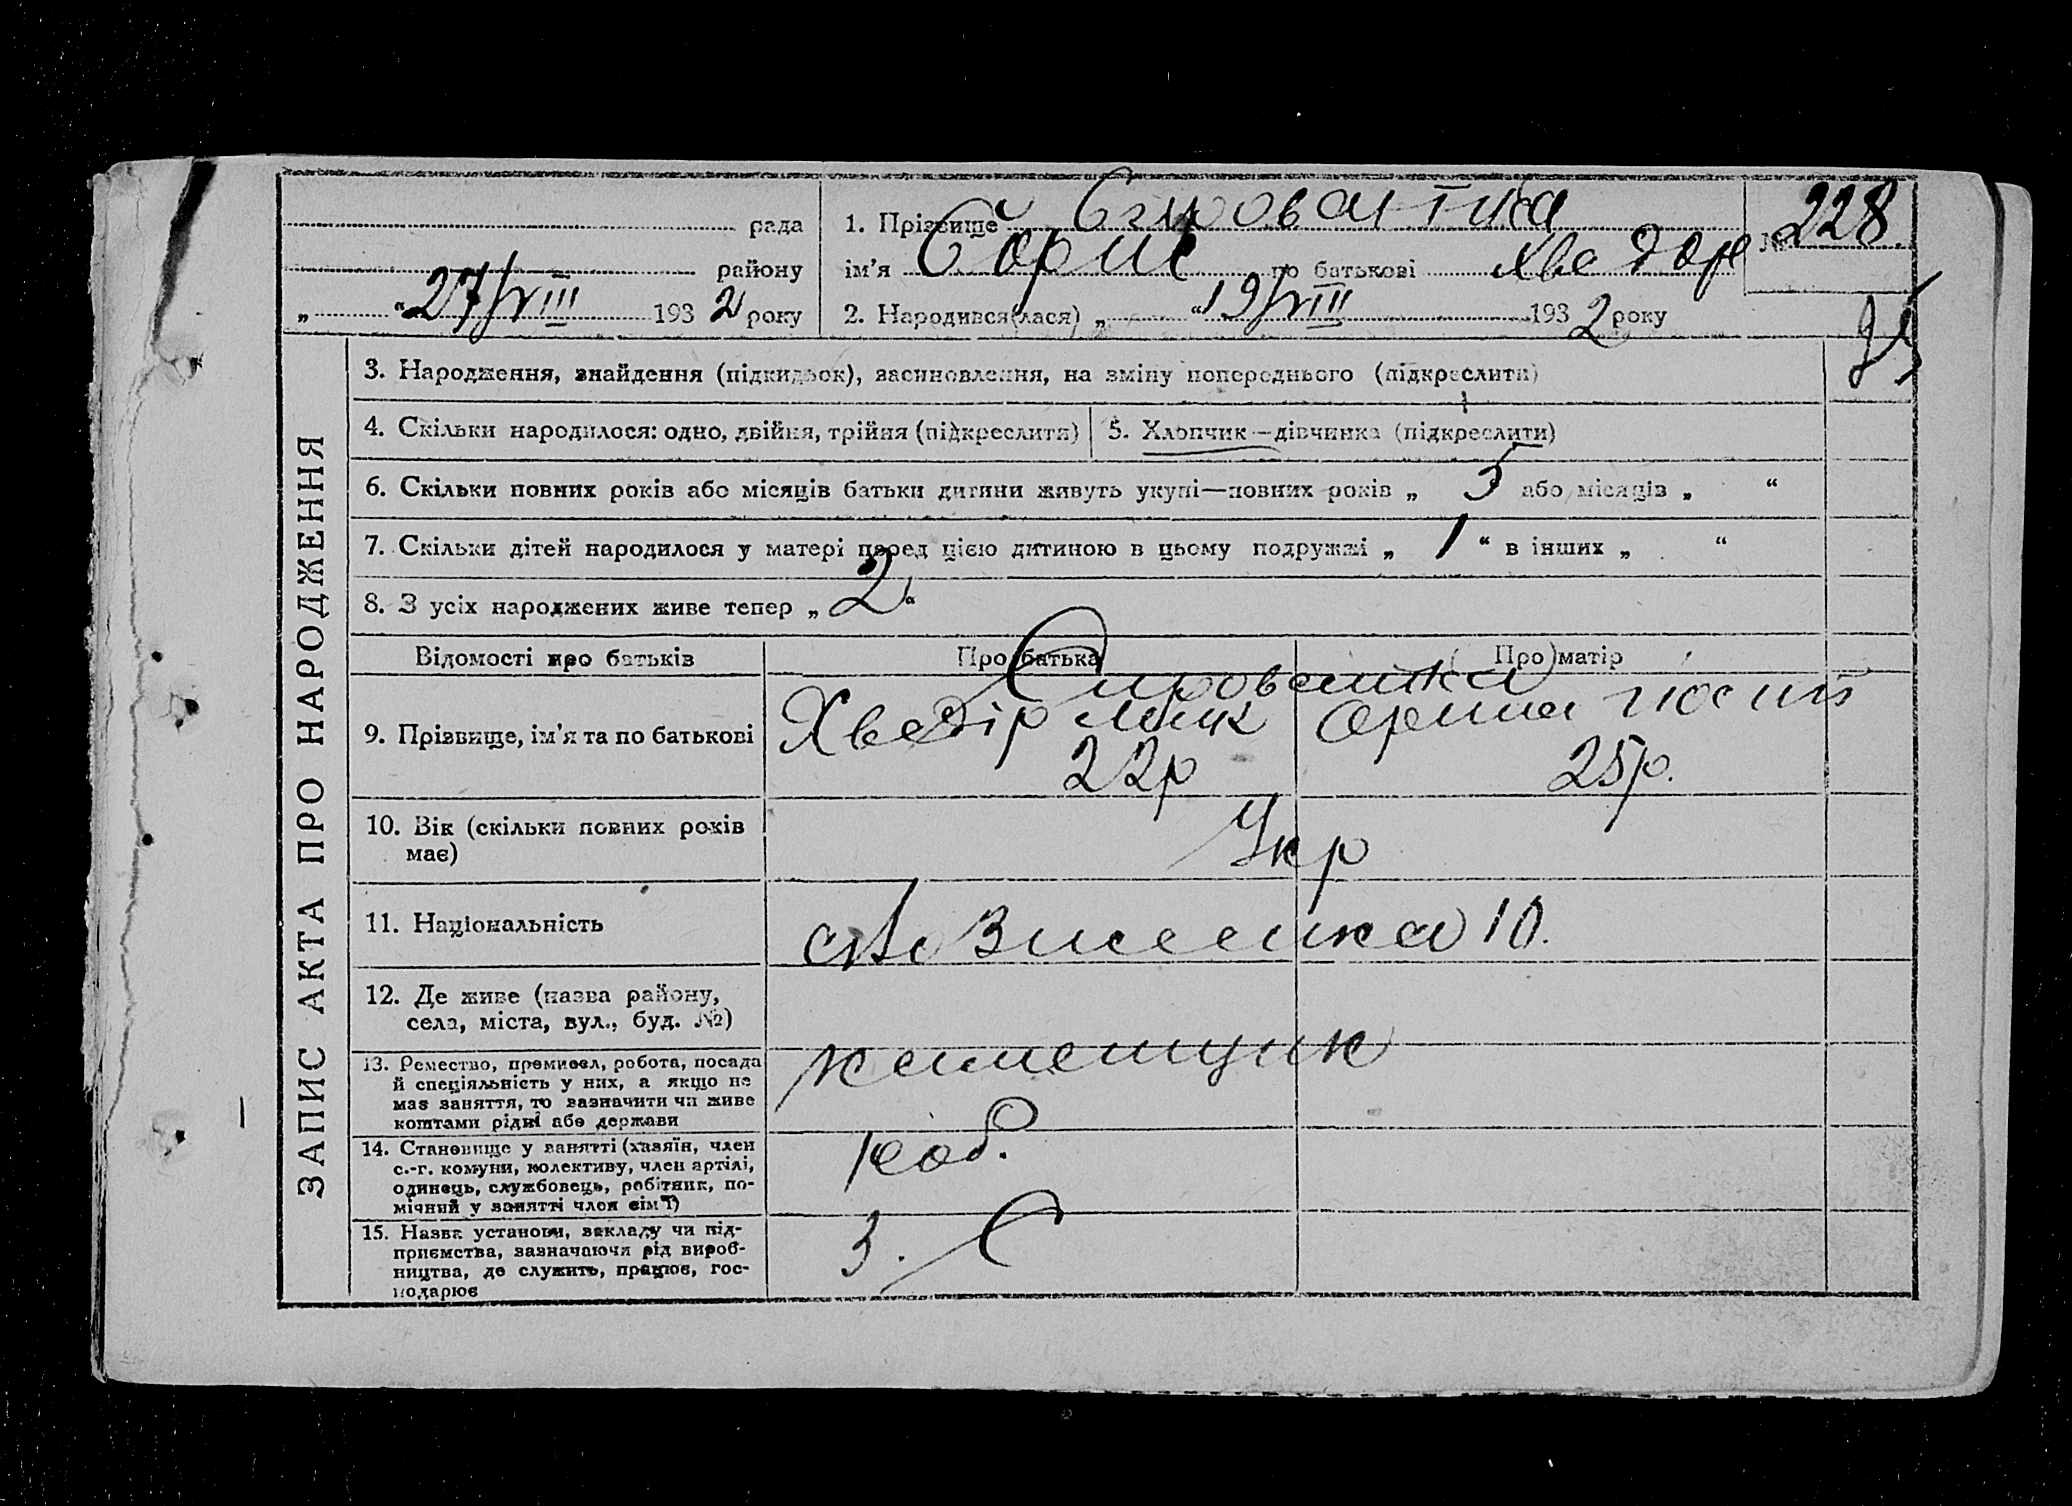 рада
1. Прізвище Сировантка
№ 228.
району
ім'я Борис по батькові Хведор
„ “ 27/VIII 1932 року
2. Народився(лася) „ “ 19/VIII 1932 року
ЗАПИС АКТА ПРО НАРОДЖЕННЯ
3. Народження, знайдення (підкидьок), засиновлення, на зміну попереднього (підкреслити)
4. Скільки народилося: одно, двійня, трійня (підкреслити)
5. Хлопчик—дівчинка (підкреслити)
6. Скільки повних років або місяців батьки дитини живуть укупі—повних років „ 5 або місяців „ “
7. Скільки дітей народилося у матері перед цією дитиною в цьому подружжі „ 1 “ в інших „ “
8. З усіх народжених живе тепер „ 2 “
Відомості про батьків
Про батька
Про матір
9. Прізвище, ім'я та по батькові
Сировантка
Хведір
22р
25р.
10. Вік (скільки повних років має)
Укр
11. Національність
10.
12. Де живе (назва району,
села, міста, вул., буд. №)
13. Ремество, промисел, робота, посада
й спеціяльність у них, а якщо не
має заняття, то зазначити чи живе
коштами рідні або держави
14. Становище у занятті (хазяїн, член
с.-г. комуни, колективу, член артілі,
одинець, службовець, робітник, по-
мічний у занятті член сім'ї)
роб.
15. Назва установи, закладу чи під-
приємства, зазначаючи рід вироб-
ництва, де служить, працює, гос-
подарює
З. С